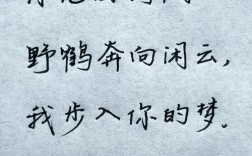 野鹤奔向闲云，
我步入你的梦。